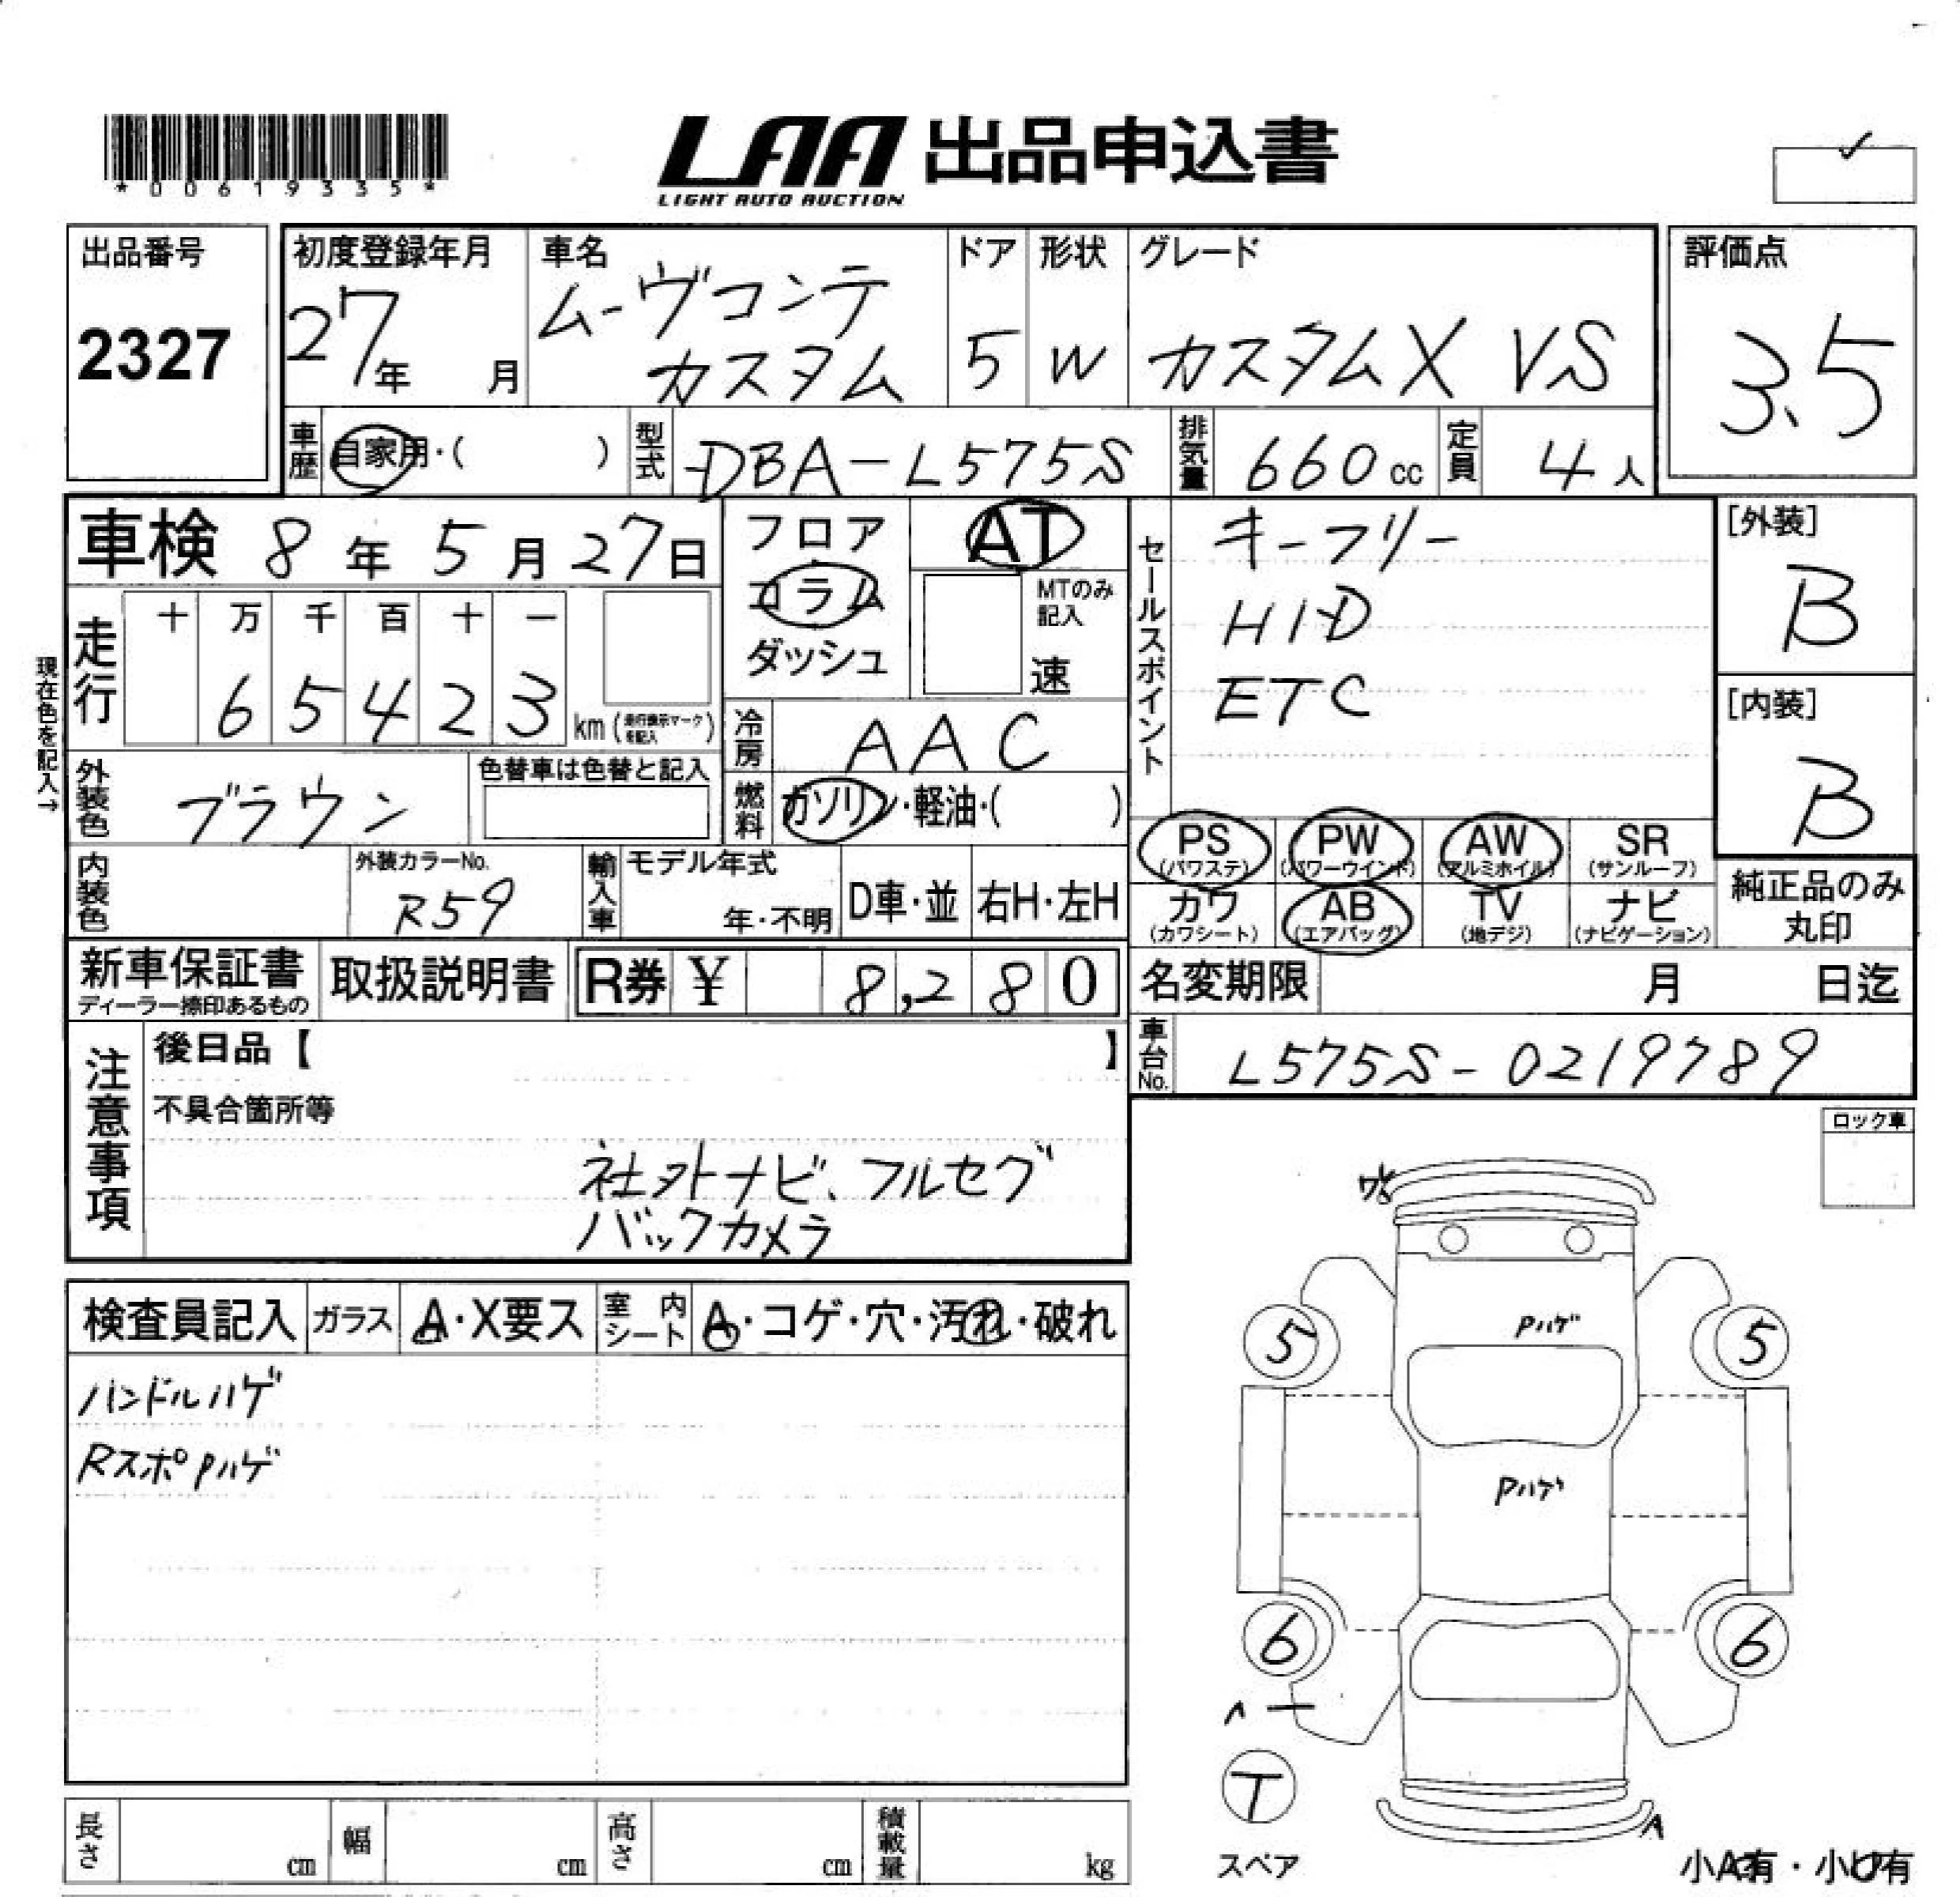 *00619335*
LAA 出品申込書
LIGHT AUTO AUCTION
出品番号
2327
初度登録年月
27年 月
車名
ムーヴコンテ
カスタム
ドア
5
形状
W
グレード
カスタムX VS
評価点
3.5
車歴 自家用・( )
型式 DBA-L575S
排気量 660cc
定員 4人
車検 8年5月27日
フロア
コラム
ダッシュ
AT
MTのみ
記入
速
セールスポイント
キーフリー
HID
ETC
[外装]
B
[内装]
B
現在色を記入→
走行
十 万 千 百 十 一
6 5 4 2 3 km (走行表示マークを記入)
冷房 AAC
燃料 ガソリン・軽油・( )
外装色 ブラウン
色替車は色替と記入
PS (パワステ)
PW (パワーウインド)
AW (アルミホイル)
SR (サンルーフ)
カワ (カワシート)
AB (エアバッグ)
TV (地デジ)
ナビ (ナビゲーション)
純正品のみ
丸印
内装色
外装カラーNo.
R59
輸入車
モデル年式
年・不明
D車・並
右H・左H
新車保証書
ディーラー捺印あるもの
取扱説明書
R券 ¥ 8,280
名変期限 月 日迄
車台No. L575S-0219789
注意事項
後日品【 】
不具合箇所等
社外ナビ、フルセグ
バックカメラ
ロック車
検査員記入
ガラス A・X要ス
室内シート A・コゲ・穴・汚れ・破れ
ハンドルハゲ
Rスポ Pハゲ
Pハゲ
5 5
Pハゲ
6 6
T
スペア
A
小A有・小U有
長さ cm
幅 cm
高さ cm
積載量 kg